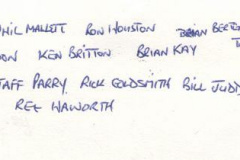 PHIL MALLETT RON HOUSTON BRIAN
KEN BRITTON BRIAN KAY
PARRY RICK GOLDSMITH BILL JUDD
REX HAWORTH